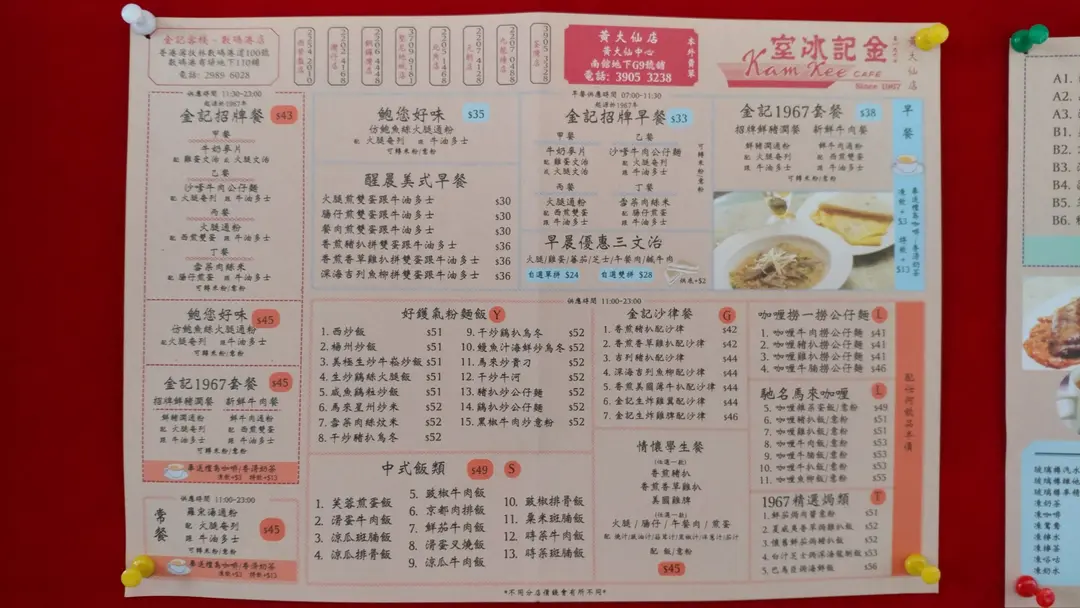 金記客棧 - 數碼港店
香港薄扶林數碼港道100號
數碼港商場地下110舖
電話: 2989 6028
黃大仙店
黃大仙中心
南館地下G9號舖
電話: 3905 3238
金記冰室
Kam Kee CAFE
Since 1967
黃大仙店
供應時間 11:30-23:00
起源於1967年
金記招牌餐 $43
甲餐
牛奶麥片
配 雞蛋文治 或 火腿文治
乙餐
沙嗲牛肉公仔麵
配 火腿奄列 跟 牛油多士
丙餐
火腿通粉
配 西煎雙蛋 跟 牛油多士
丁餐
雪菜肉絲米
配 腸仔煎蛋 跟 牛油多士
可轉米粉/意粉
鮑您好味 $45
仿鮑魚絲火腿通粉
配 火腿奄列 跟 牛油多士
可轉米粉/意粉
金記1967套餐 $45
招牌鮮豬潤餐 新鮮牛肉餐
鮮豬潤通粉 鮮牛肉通粉
配 火腿奄列 配 西煎雙蛋
跟 牛油多士 跟 牛油多士
可轉米粉/意粉
奉送檀島咖啡/香滑奶茶
凍飲+$3 特飲+$13
供應時間 11:00-23:00
常餐
羅宋湯通粉
配 火腿奄列
跟 牛油多士
可轉米粉/意粉
$45
奉送檀島咖啡/香滑奶茶
凍飲+$3 特飲+$13
鮑您好味 $35
仿鮑魚絲火腿通粉
配 火腿奄列 跟 牛油多士
可轉米粉/意粉
醒晨美式早餐
火腿煎雙蛋跟牛油多士 $30
腸仔煎雙蛋跟牛油多士 $30
餐肉煎雙蛋跟牛油多士 $30
香煎豬扒拼雙蛋跟牛油多士 $36
香煎香草雞扒拼雙蛋跟牛油多士 $36
深海吉列魚柳拼雙蛋跟牛油多士 $36
早餐供應時間 07:00-11:30
起源於1967年
金記招牌早餐 $33
甲餐
牛奶麥片
配 雞蛋文治
或 火腿文治
乙餐
沙嗲牛肉公仔麵
配 火腿奄列
跟 牛油多士
丙餐
火腿通粉
配 西煎雙蛋
跟 牛油多士
丁餐
雪菜肉絲米
配 腸仔煎蛋
跟 牛油多士
可轉米粉/意粉
早晨優惠三文治
火腿/雞蛋/蕃茄/芝士/午餐肉/鹹牛肉
自選單拼 $24 自選雙拼 $28
烘底+$2
金記1967套餐 $38
招牌鮮豬潤餐 新鮮牛肉餐
鮮豬潤通粉 鮮牛肉通粉
配 火腿奄列 配 西煎雙蛋
跟 牛油多士 跟 牛油多士
可轉米粉/意粉
早餐
奉送檀島咖啡/香滑奶茶
凍飲+$3 特飲+$13
供應時間 11:00-23:00
好鑊氣粉麵飯 Y
1. 西炒飯 $51
2. 楊州炒飯 $51
3. 美極生炒牛崧炒飯 $51
4. 生炒鷄絲火腿飯 $51
5. 咸魚鷄粒炒飯 $51
6. 馬來星州炒米 $52
7. 雪菜肉絲炆米 $52
8. 干炒豬扒烏冬 $52
9. 干炒鷄扒烏冬 $52
10. 鰻魚汁海鮮炒烏冬 $52
11. 馬來炒貴刁 $52
12. 干炒牛河 $52
13. 豬扒炒公仔麵 $52
14. 鷄扒炒公仔麵 $52
15. 黑椒牛肉炒意粉 $52
中式飯類 $49 S
1. 芙蓉煎蛋飯
2. 滑蛋牛肉飯
3. 涼瓜斑腩飯
4. 涼瓜排骨飯
5. 豉椒牛肉飯
6. 京都肉排飯
7. 鮮茄牛肉飯
8. 滑蛋叉燒飯
9. 涼瓜牛肉飯
10. 豉椒排骨飯
11. 粟米斑腩飯
12. 時菜牛肉飯
13. 時菜斑腩飯
金記沙律餐 G
1. 香煎豬扒配沙律 $42
2. 香煎香草雞扒配沙律 $42
3. 吉列豬扒配沙律 $44
4. 深海吉列魚柳配沙律 $44
5. 香煎美國薄牛扒配沙律 $44
6. 金記生炸雞翼配沙律 $44
7. 金記生炸雞脾配沙律 $46
情懷學生餐
(任選一款)
香煎豬扒
香煎香草雞扒
美國雞脾
(任選一款)
火腿 / 腸仔 / 午餐肉 / 煎蛋
配 飯/意粉
$45
咖喱撈一撈公仔麵 L
1. 咖喱牛肉撈公仔麵 $41
2. 咖喱豬扒撈公仔麵 $41
3. 咖喱雞扒撈公仔麵 $41
4. 咖喱牛腩撈公仔麵 $46
馳名馬來咖喱 L
5. 咖喱雜菜蛋飯/意粉 $49
6. 咖喱豬扒飯/意粉 $51
7. 咖喱雞扒飯/意粉 $51
8. 咖喱牛肉飯/意粉 $53
9. 咖喱牛腩飯/意粉 $53
11. 咖喱魚柳飯/意粉 $55
1967精選焗類 T
1. 鮮茄焗肉醬意粉 $51
2. 夏威夷香草焗雞扒飯 $52
3. 懷舊鮮茄焗豬扒飯 $52
4. 白汁芝士焗深海龍脷飯 $53
5. 巴馬臣焗海鮮飯 $56
*不同分店價錢會有所不同*
A1.
A2.
A3.
B1.
B2.
B3.
B4.
B5.
B6.
凍奶茶
凍咖啡
凍鴛鴦
凍檸水
凍檸茶
凍奶水